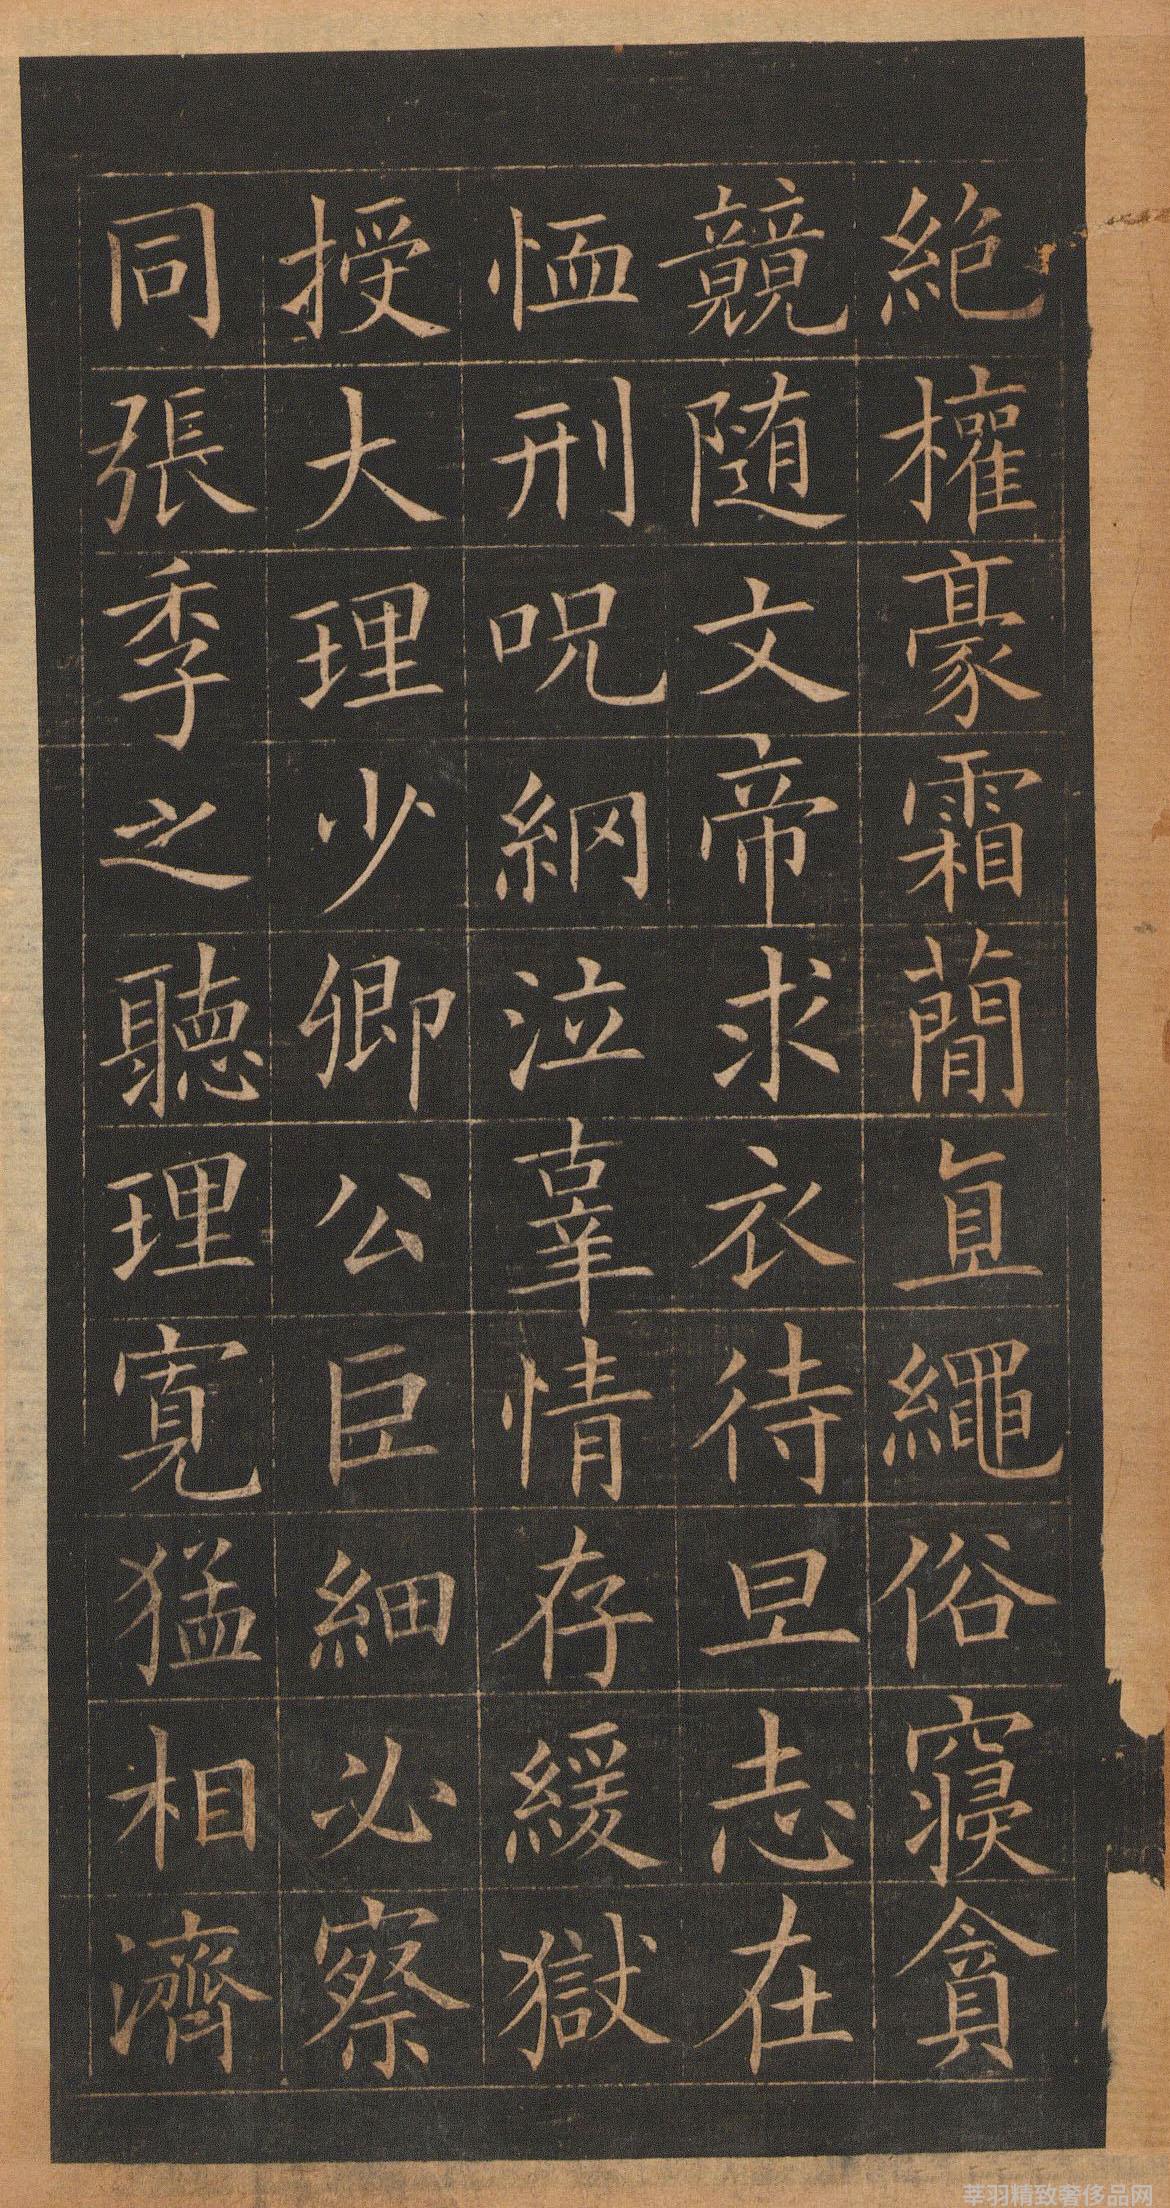 絶權豪霜簡直繩俗寢貪
競随文帝求衣待旦志在
恤刑呪網泣辜情存緩獄
授大理少卿公巨細必察
同張季之聽理寬猛相濟
莘羽精致奢侈品网